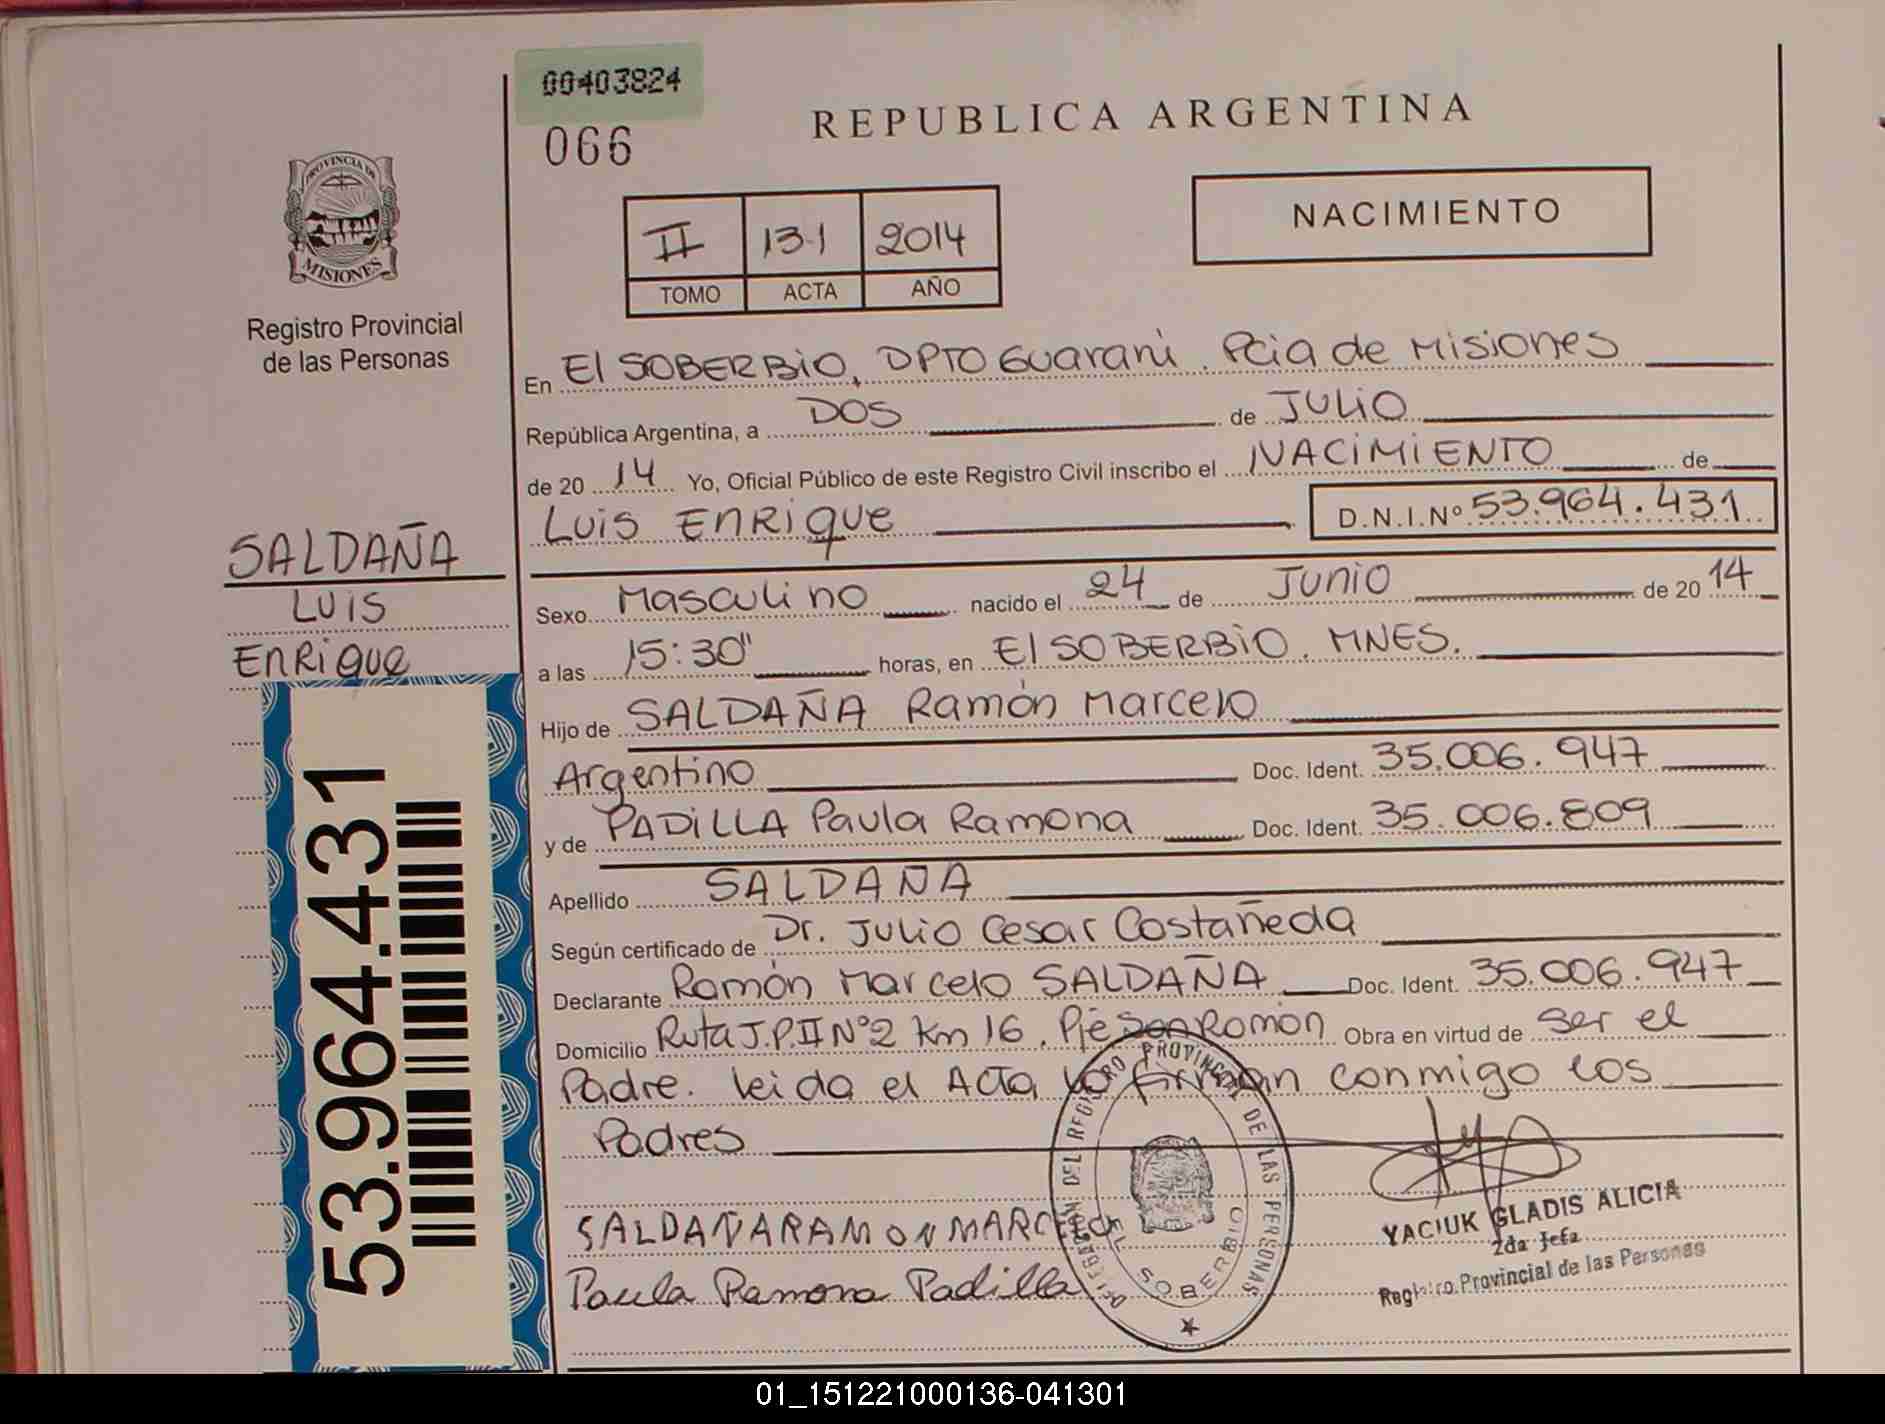 00403824
066
REPUBLICA ARGENTINA
PROVINCIA DE
MISIONES
Registro Provincial
de las Personas
II 131 2014
TOMO ACTA AÑO
NACIMIENTO
En El SOBERBIO, DPTO Guaraní. Pcia de Misiones
República Argentina, a DOS de JULIO
de 20 14 Yo, Oficial Público de este Registro Civil inscribo el NACIMIENTO de
Luis Enrique D.N.I.Nº 53.964.431
SALDAÑA
LUIS
Enrique
Sexo Masculino nacido el 24 de Junio de 20 14
a las 15:30" horas, en El SOBERBIO. MNES.
Hijo de SALDAÑA Ramón Marcelo
Argentino Doc. Ident. 35.006.947
y de PADILLA Paula Ramona Doc. Ident. 35.006.809
Apellido SALDAÑA
Según certificado de Dr. Julio Cesar Costañeda
Declarante Ramón Marcelo SALDAÑA Doc. Ident. 35.006.947
Domicilio Ruta J.P.II Nº2 Km 16. Pje Ramón Obra en virtud de ser el
Padre. Leida el ACTA la firman conmigo los
Padres
53.964.431
SALDAÑA RAMON MARCELO
Paula Ramona Padilla
DELEGACION DEL REGISTRO PROVINCIAL DE LAS PERSONAS
EL SOBERBIO
YACIUK GLADIS ALICIA
2da Jefa
Registro Provincial de las Personas
01_151221000136-041301